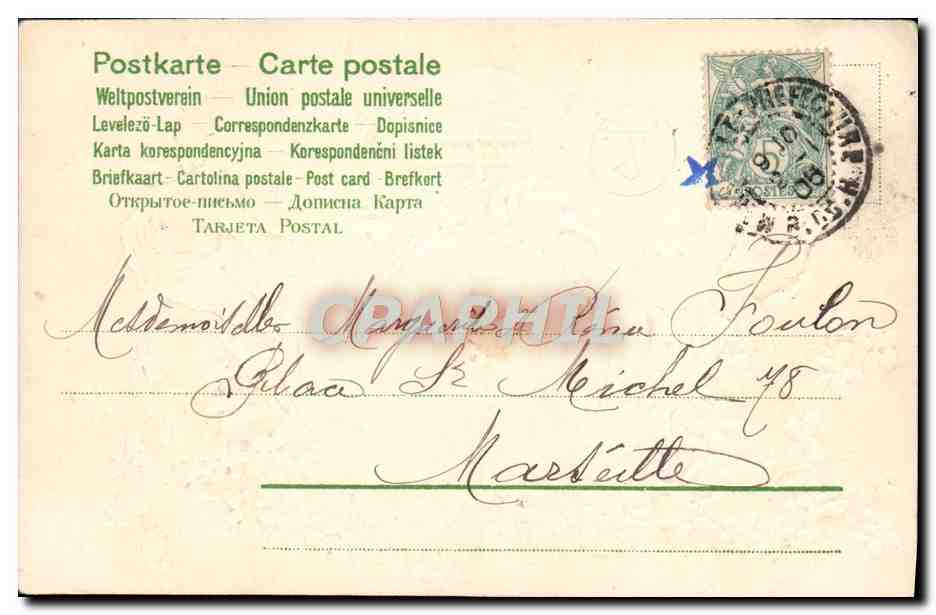 Postkarte — Carte postale
Weltpostverein — Union postale universelle
Levelező-Lap — Correspondenzkarte — Dopisnice
Karta korespondencyjna — Korespondenční listek
Briefkaart - Cartolina postale - Post card - Brefkort
Открытое-письмо — Дописна Карта
Tarjeta Postal
5
POSTES
PREFECTURE
05
CPARPHIL
Mesdemoiselles Marguerite et Foulon
Place St Michel 78
Marseille